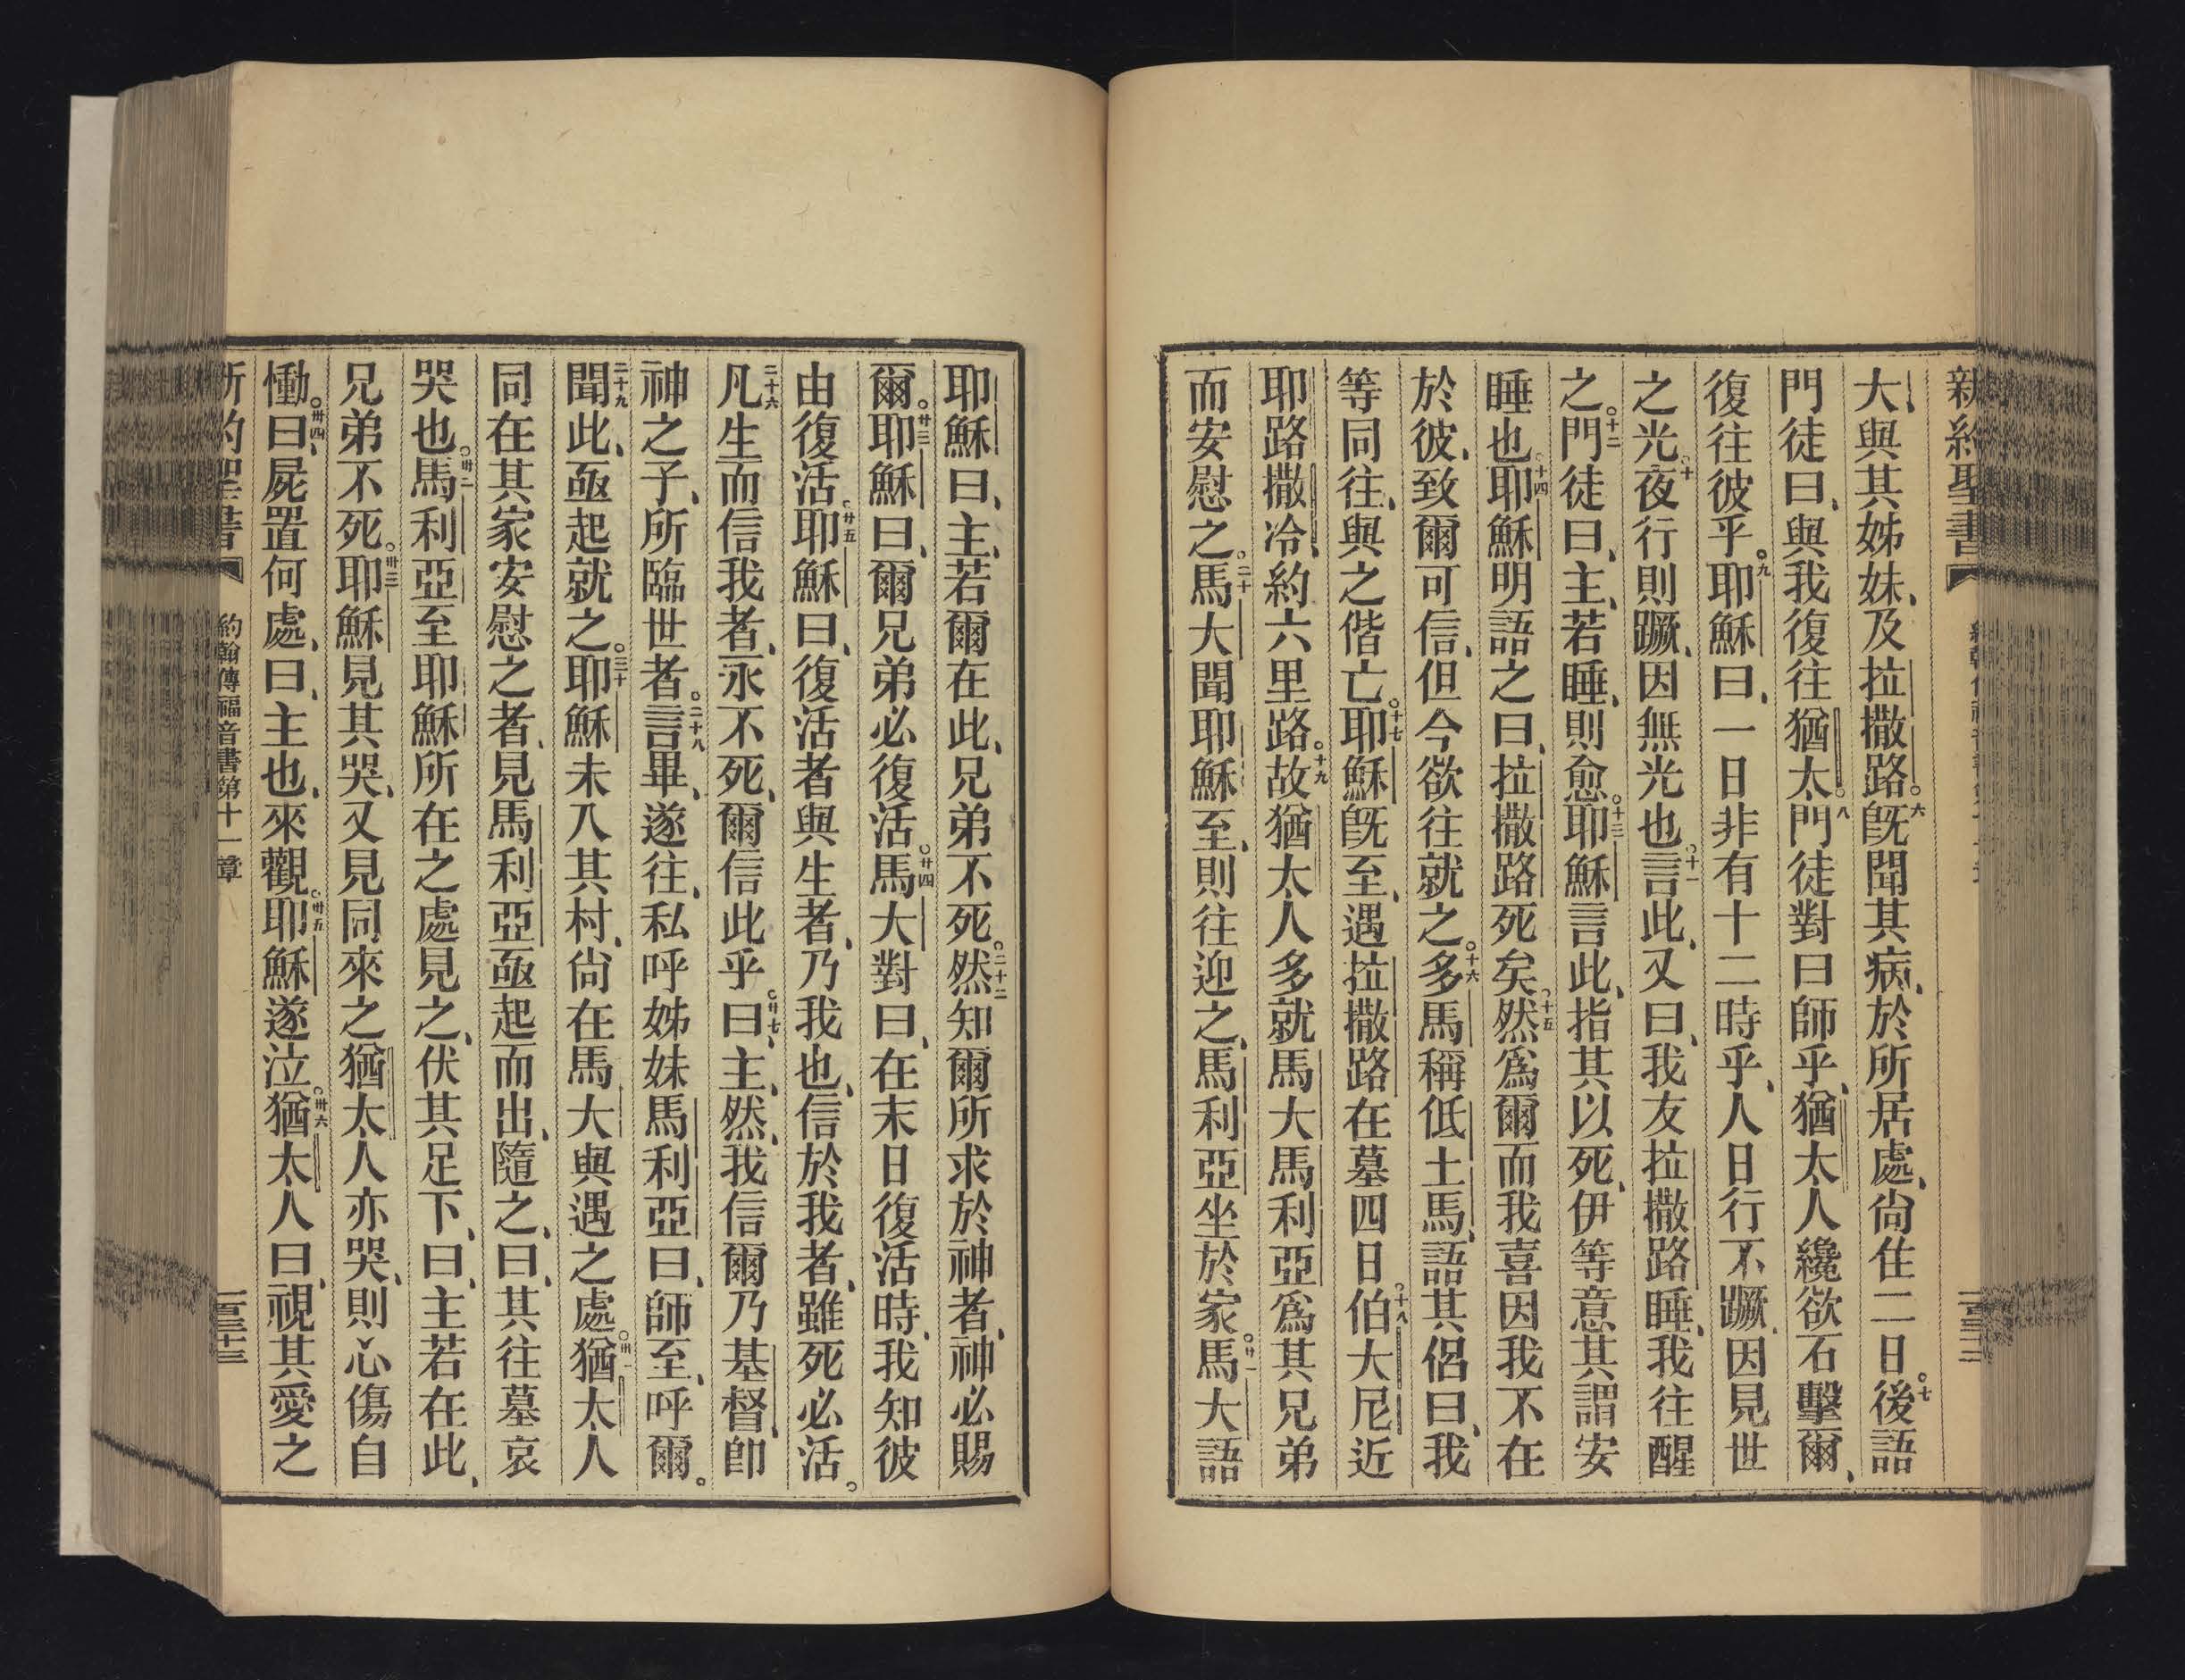 新約聖書
大、與其姊妹、及拉撒路。六旣聞其病、於所居處、尙住二日。七後語
門徒曰、與我復往猶太。八門徒對曰師乎、猶太人纔欲石擊爾、
復往彼乎。九耶穌曰、一日非有十二時乎、人日行不蹶、因見世
之光。十夜行則蹶、因無光也。十一言此、又曰、我友拉撒路睡、我往醒
之。十二門徒曰、主、若睡、則愈。十三耶穌言此、指其以死、伊等意其謂安
睡也。十四耶穌明語之曰、拉撒路死矣。十五然爲爾而我喜因我不在
於彼、致爾可信、但今欲往就之。十六多馬稱低土馬、語其侶曰、我
等同往、與之偕亡。十七耶穌旣至、遇拉撒路在墓四日。十八伯大尼近
耶路撒冷、約六里路。十九故猶太人多就馬大馬利亞爲其兄弟
而安慰之。二十馬大聞耶穌至、則往迎之、馬利亞坐於家。廿一馬大語
耶穌曰、主、若爾在此、兄弟不死。二十二然知爾所求於神者、神必賜
爾。廿三耶穌曰、爾兄弟必復活。廿四馬大對曰、在末日復活時、我知彼
由復活。廿五耶穌曰、復活者與生者、乃我也、信於我者、雖死必活。
二十六凡生而信我者、永不死、爾信此乎。廿七曰、主、然、我信爾乃基督、卽
神之子、所臨世者。二十八言畢、遂往、私呼姊妹馬利亞曰、師至、呼爾。
二十九聞此、亟起就之。三十耶穌未入其村、尙在馬大與遇之處。卅一猶太人
同在其家安慰之者、見馬利亞亟起而出、隨之、曰、其往墓哀
哭也。卅二馬利亞至耶穌所在之處見之、伏其足下、曰、主若在此、
兄弟不死。卅三耶穌見其哭、又見同來之猶太人亦哭、則心傷自
慟。卅四曰、屍置何處、曰、主也、來觀。卅五耶穌遂泣。卅六猶太人曰、視其愛之
新約聖書 約翰傳福音書第十一章 一百三十三